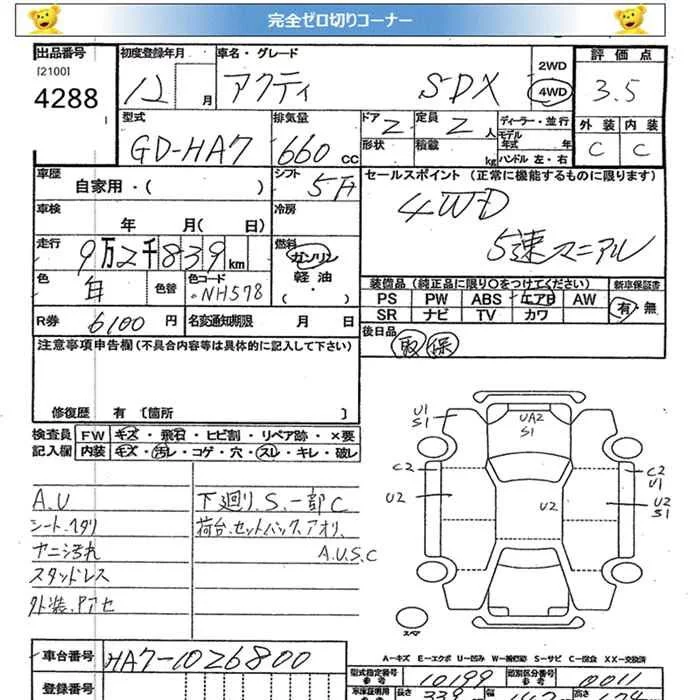 完全ゼロ切りコーナー
出品番号
[2100]
4288
初度登録年月
12 月
車名・グレード
アクティ SDX
2WD
4WD
評価点
3.5
型式
GD-HA7
排気量
660 cc
ドア 2
形状
定員 2 人
積載 kg
ディーラー・並行
モデル年式 年
ハンドル 左・右
外装 内装
C C
車歴
自家用・( )
シフト 5F
セールスポイント(正常に機能するものに限ります)
4WD
5速マニアル
車検
年 月( 日)
冷房
走行
9万2千839km
燃料
ガソリン
軽油・
( )
色 白 色替
色コード NH578
装備品(純正品に限り○をつけてください)
新車保証書
PS PW ABS エアB AW
SR ナビ TV カワ
有・無
R券 6100 円
名変通知期限 月 日
後日品 取 保
注意事項申告欄(不具合内容等は具体的に記入して下さい)
修復歴 有 [箇所 ]
検査員記入欄
FW キズ・飛石・ヒビ割・リペア跡・×要
内装 キズ・汚レ・コゲ・穴・スレ・キレ・破レ
A.U
シート.ヘタリ
ヤニ汚れ
スタッドレス
外装.Pアセ
下廻り.S.一部C
荷台.セットバック.アオリ.
A.U.S.C
U1
S1
UA2
S1
C2
U2
U2
C2
U1
U2
S1
スペア
A-キズ E-エクボ U-凹み W-補修跡 S-サビ C-腐食 XX-交換済
車台番号 HA7-1026800
型式指定番号 参考 10199
類別区分番号 参考 0011
登録番号
車庫証明用
長さ
幅
高さ